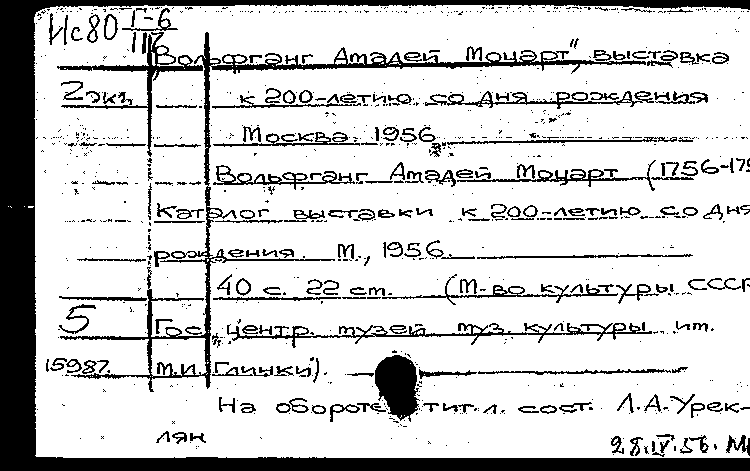 Ис80 Г-6
III
"Вольфганг Амадей Моцарт", выставка
2 экз. к 200-летию со дня рождения
Москва 1956
Вольфганг Амадей Моцарт (1756-179
Каталог выставки к 200-летию со дня
рождения. М., 1956.
40 с. 22 см. (М-во культуры СССР
5 Гос. центр. музей муз. культуры им.
15987. М.И. Глинки).
На обороте тит. л. сост. Л.А. Урек-
лян
28.IV.56.